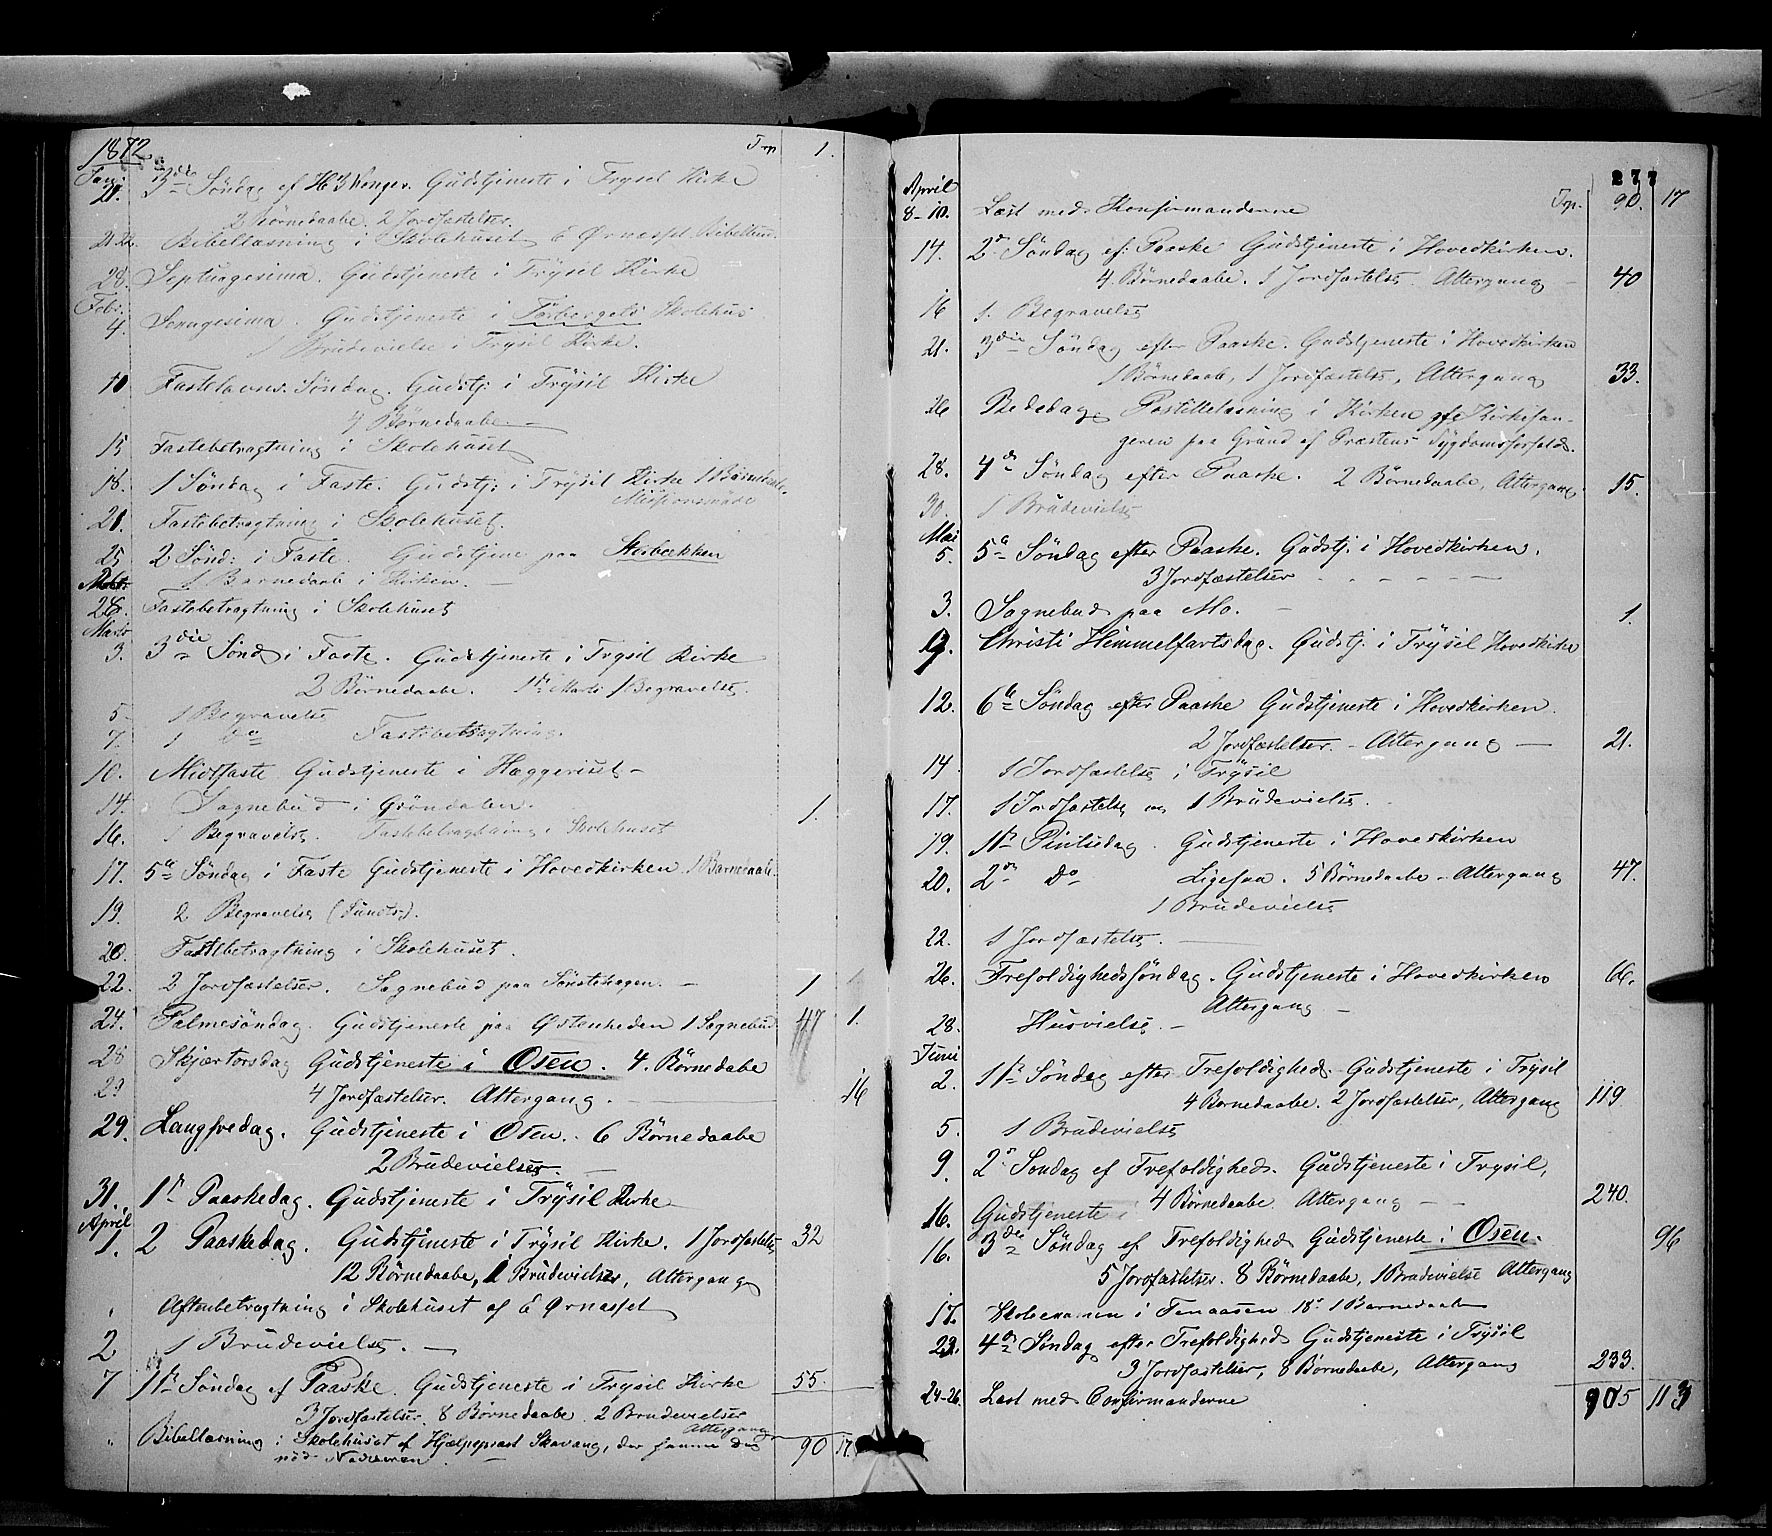 1872. Trp. 1.
Jan: 21. 3die Søndag ef H 3 Konger. Gudstjeneste i Trysil Kirke
2 Børnedaabe. 2 Jordfæstelser.
21 22. Bibellæsning i Skolehuset
28. Septuagesima. Gudstjeneste i Trysil Kirke
Febr. 4. Sexagesima. Gudstjeneste i Førbergets Skolehus
1 Brudevielse i Trysil Kirke.
10 Fastelavns. Søndag. Gudstj: i Trysil Kirke
4 Børnedaabe. —
15 Fastebetragtning i Skolehuset
18. 1 Søndag i Faste. Gudstj: i Trysil Kirke 1 Barnedaab.
Missionsmøde
21. Fastebetragtning i Skolehuset.
25 2 Sønd: i Faste. Gudstjene paa Størbækken
1 Barnedaab i Kirken. —
28. Fastebetragtning i Skolehuset
Marts 3. 3die Sønd i Faste. Gudstjeneste i Trysil Kirke
2 Børnedaabe. 1ste Marts 1 Begravelse.
5 1 Begravelse
7. 1 do Fastebetragtning.
10. Midtfaste Gudstjeneste i Haggeriset —
14. Sognebud i Grøndalen. 1.
16. 1 Begravelse. Fastebetragtning i Skolehuset
17. 5te Søndag i Faste Gudstjeneste i Hovedkirken 1 Barnedaab.
19. 2 Begravelse
20. Fastebetragtning i Skolehuset.
22. 2 Jordfæstelser. Sognebud paa Sønstehagen. — 1
24. Palmesøndag. Gudstjeneste paa Østenheden 1 Sognebud 47 1.
28 Skjærtorsdag Gudstjeneste i Osen. 4. Børnedaabe
29 4 Jordfæstelser. Altergang. — 16
29. Langfredag. Gudstjeneste i Osen. 6 Børnedaabe
2 Brudevielser. —
31. 1ste Paaskedag. Gudstjeneste i Trysil Kirke
April 1. 2 Paaskedag. Gudstjeneste i Trysil Kirke. 1 Jordfæstelse 32
12 Børnedaabe, 1 Brudevielser, Altergang
" Aftenbetragtning i Skolehuset af E Ørnæsset
2 1 Brudevielse. —
7 1ste Søndag ef Paaske. Gudstjeneste i Trysil Kirke 55.
3 Jordfæstelser. 8 Børnedaabe. 2 Brudevielser
Altergang
" Bibellæsning i Skolehuset af Hjælpeprest Skavang, der samme Dag
90 17.
277
April 8-10. Læst med Konfirmanderne Trp. 90. 17
14. 2den Søndag ef: Paaske Gudstjeneste i Hovedkirken.
4 Børnedaabe. 1 Jordfæstelse. Altergang — 40
16 1. Begravelse
21. 3die Søndag efter Paaske. Gudstjeneste i Hovedkirken
1 Børnedaab, 1 Jordfæstelse, Altergang 33.
26 Bededag. Postillelæsning i Kirken af Kirkesan-
geren paa Grund af Præstens Sygdomsforfald.
28. 4de Søndag efter Paaske. 2 Børnedaabe, Altergang 15.
30. 1 Brudevielse
Mai 5. 5te Søndag efter Paaske. Gudstj. i Hovedkirken.
3 Jordfæstelser — — —
3. Sognebud paa Mo. — 1.
9. Christi Himmelfartsdag. Gudstj. i Trysil Hovedkirke
12. 6te Søndag efter Paaske Gudstjeneste i Hovedkirken.
2 Jordfæstelser. — Altergang — 21.
14. 1 Jordfæstelse i Trysil
17. 1 Jordfæstelse og 1 Brudevielse.
19. 1ste Pintsedag. Gudstjeneste i Hovedkirken
20. 2den do Ligesaa. 5 Børnedaabe — Altergang 47.
1 Brudevielse
22. 1 Jordfæstelse. —
26. Trefoldighedssøndag. Gudstjeneste i Hovedkirken 66.
Altergang —
28. Husvielse. —
Juni 2. 1ste Søndag efter Trefoldigheds. Gudstjeneste i Trysil
4 Børnedaabe. 2 Jordfæstelser, Altergang 119
5. 1 Brudevielse
9. 2den Søndag ef Trefoldigheds. Gudstjeneste i Trysil,
4 Børnedaabe Altergang — 240.
16. Gudstjeneste i
16. 3die Søndag ef Trefoldigheds Gudstjeneste i Osen. 96
5 Jordfæstelser. 8 Børnedaabe, 1 Brudevielse Altergang
17. Skoleexamen i Tenaasen 18de 1 Barnedaab
23. 4de Søndag efter Trefoldigheds Gudstjeneste i Trysil
3 Jordfæstelser, 8 Børnedaabe, Altergang 233.
24-26. Læst med Confirmanderne 905 113